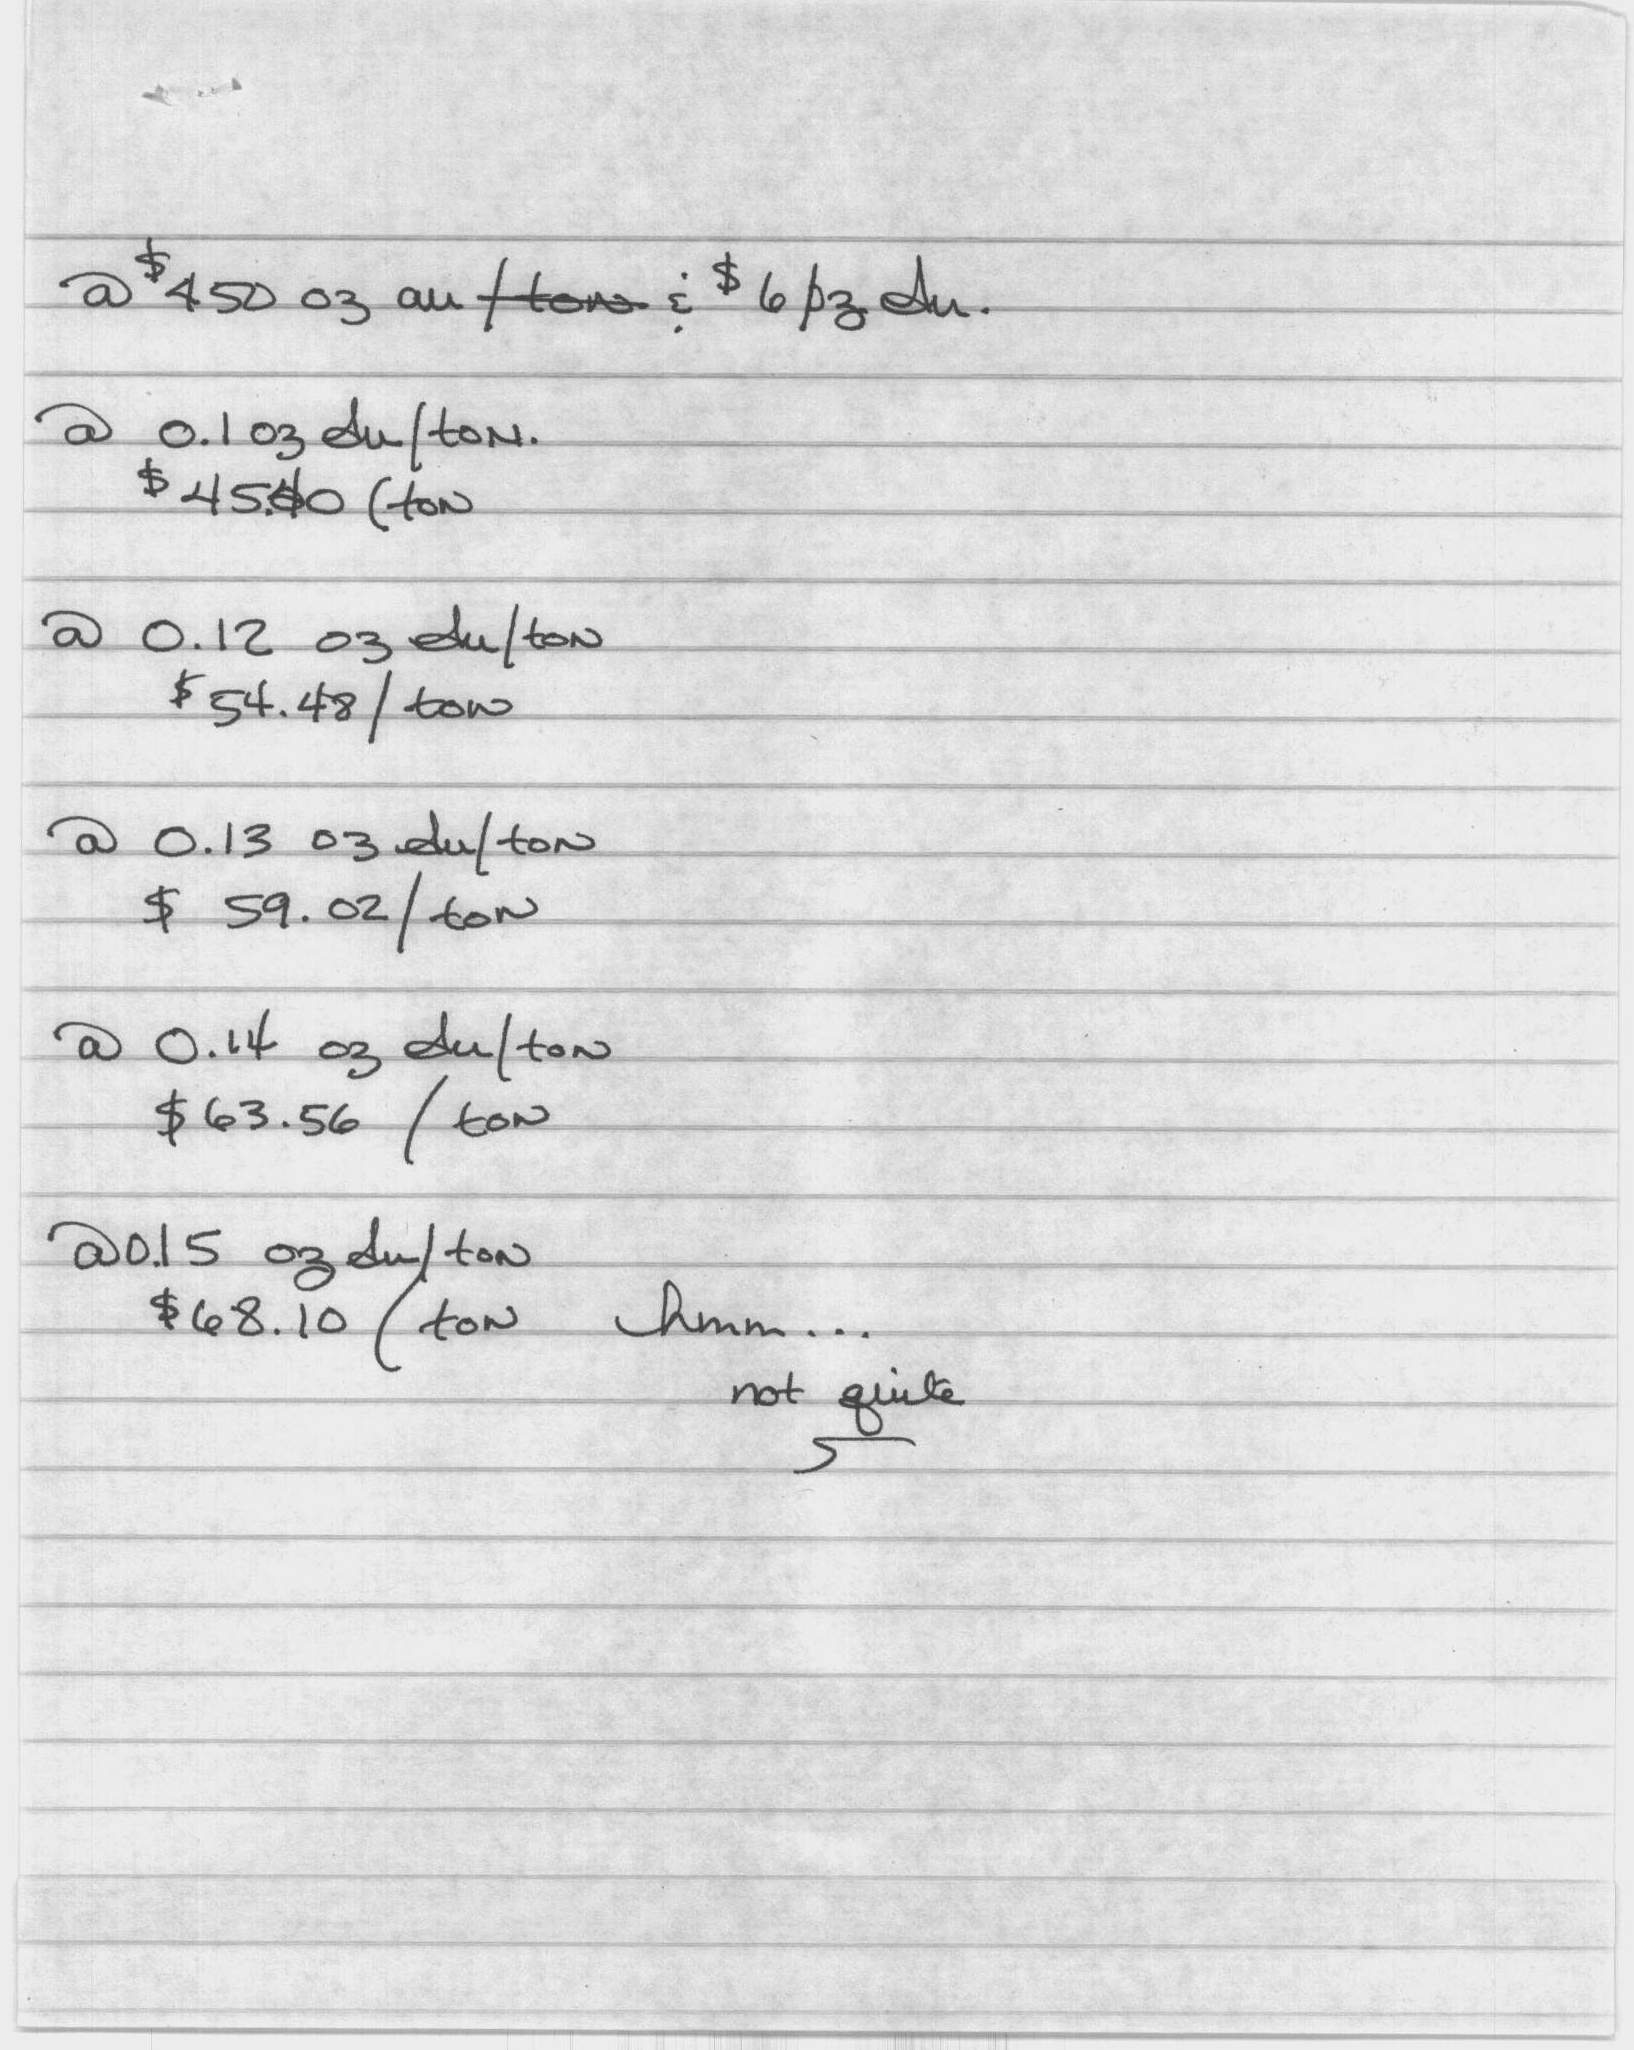 @ $450 oz au /ton & $6/oz Au.
@ 0.1 oz Au/ton.
$45.40 /ton
@ 0.12 oz Au/ton
$54.48/ton
@ 0.13 oz Au/ton
$ 59.02/ton
@ 0.14 oz Au/ton
$63.56 /ton
@ 0.15 oz Au/ton
$68.10 /ton hmm...
not quite